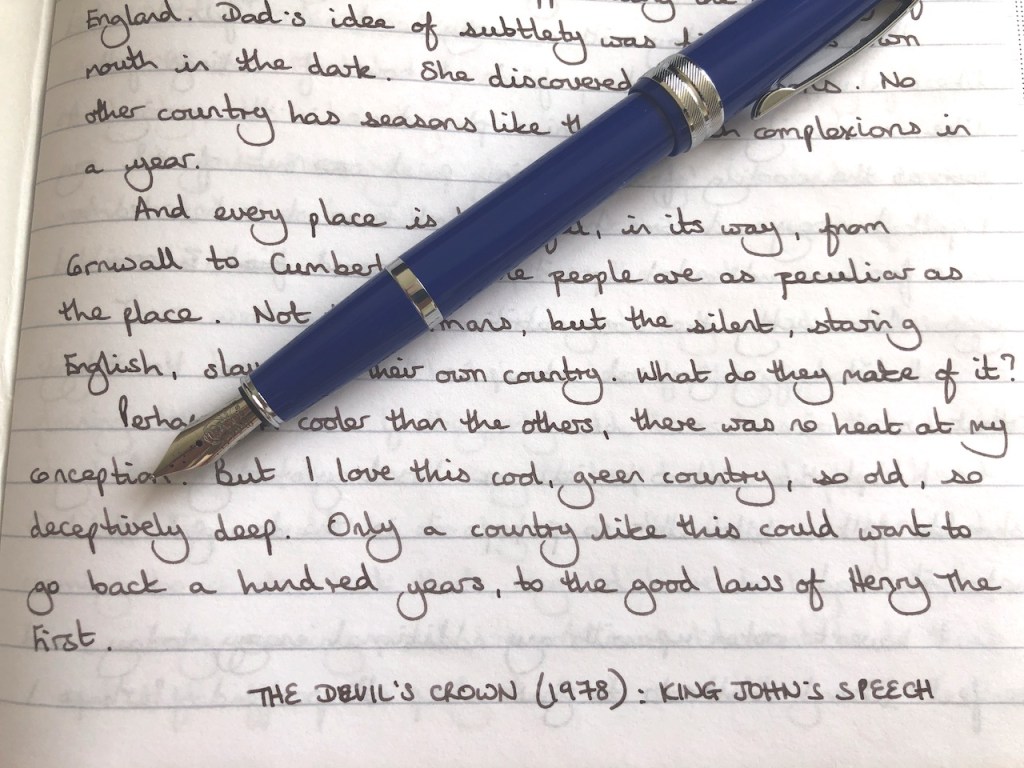 England. Dad's idea of subtlety was own
mouth in the dark. She discovered. No
other country has seasons like complexions in
a year.
And every place is, in its way, from
Cornwall to people are as peculiar as
the place. Not, but the silent, staring
English, their own country. What do they make of it?
cooler than the others, there was no heat at my
conception. But I love this cool, green country, so old, so
deceptively deep. Only a country like this could want to
go back a hundred years, to the good laws of Henry The
First.
THE DEVIL'S CROWN (1978): KING JOHN'S SPEECH